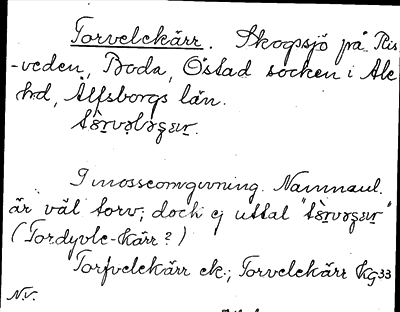 Torvelekärr. Skogssjö på Ris-
-veden, Boda, Östad socken i Ale
hd, Älfsborgs län.
I mosseomgivning. Namnaul.
är väl torv; doch ej uttal
(Tordyvle-Kärr?)
Torfvelekärr ek.; Torvelekärr KG33
N.V.